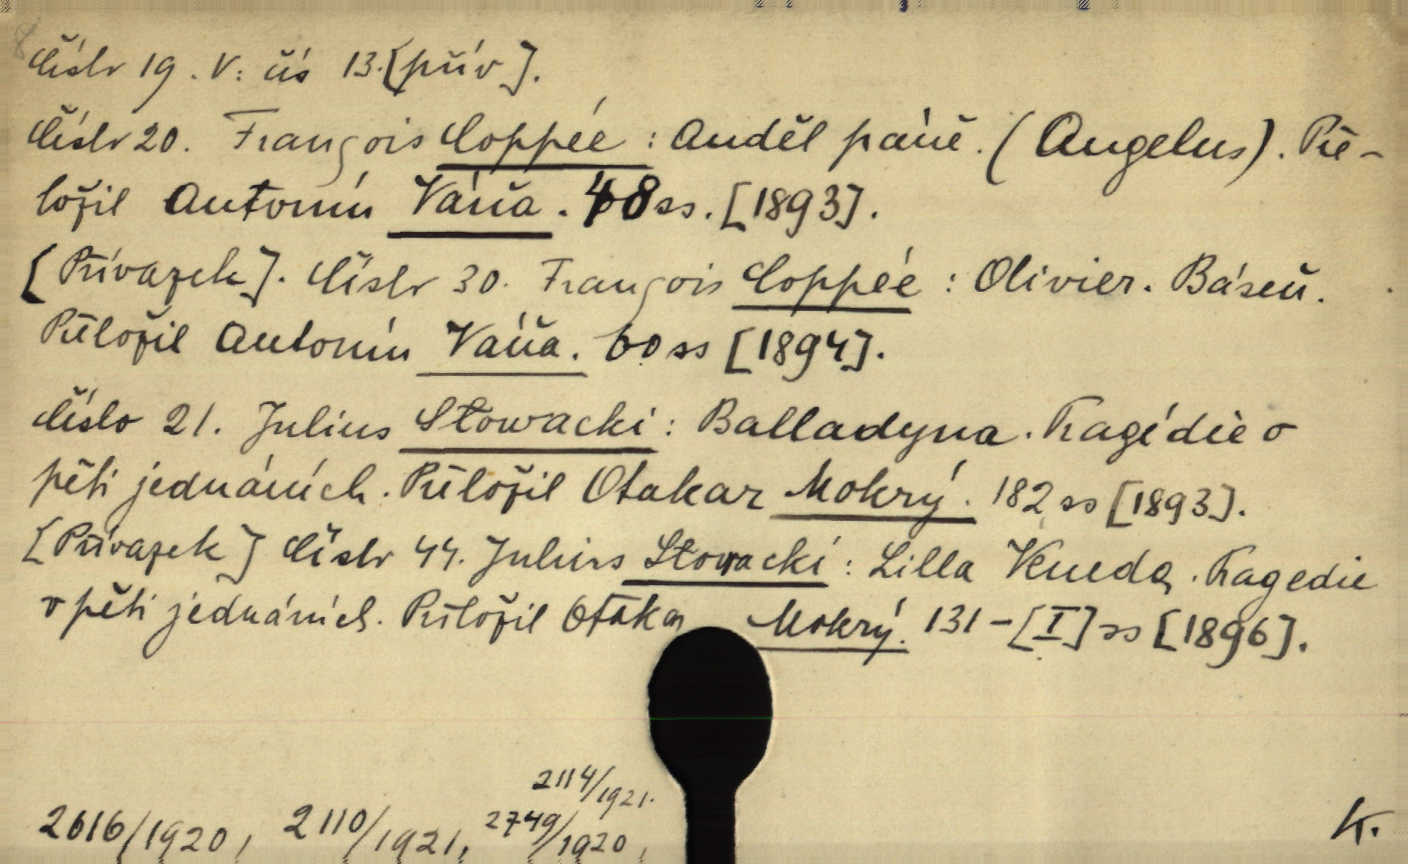 8
Číslo 19. V: čís 13. [přív].
Číslo 20. François Coppée: Anděl páně. (Angelus). Pře-
ložil Antonín Váňa. 48 ss. [1893].
[Přívazek]. Číslo 30. François Coppée: Olivier. Báseň.
Přeložil Antonín Váňa. 60 ss [1894].
Číslo 21. Julius Słowacki: Balladyna. Tragédie o
pěti jednáních. Přeložil Otakar Mokrý. 182 ss [1893].
[Přívazek] Číslo 44. Julius Słowacki: Lilla Veneda. Tragedie
v pěti jednáních. Přeložil Otaka Mokrý. 131-[I] ss [1896].
2114/1921.
2616/1920, 2110/1921, 2749/1920,
K.